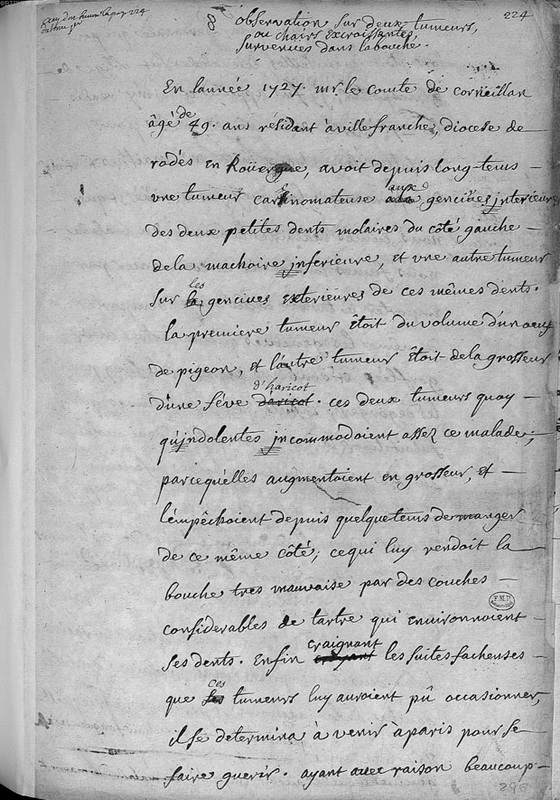 224
8 observation sur deux tumeurs,
ou chairs excroissantes,
survenües dans la bouche.
En l'année 1727. mr. le Comte de corneillan
âgé de 49. ans résidant à villefranche, diocese de
rodés en Roüergue, avoit depuis long-tems
une tumeur carcinomateuse aux gencives interieures
des deux petites dents molaires du côté gauche
de la machoire inferieure, et une autre tumeur
sur les gencives exterieures de ces mêmes dents.
la premiere tumeur étoit du volume d'un oeuf
de pigeon, et l'autre tumeur étoit de la grosseur
d'haricot
d'une féve daricot. ces deux tumeurs quoy
qu'indolentes incommodoient assez ce malade;
parcequ'elles augmentoient en grosseur, et
l'empêchoient depuis quelque tems de manger
de ce même côté; ce qui luy rendoit la
bouche tres mauvaise par des couches
considerables de tartre qui environnoient
craignant
ses dents. Enfin croyant les suites facheuses
que ces tumeurs luy auroient pû occasionner,
il se determina à venir à paris pour se
faire guerir. ayant avec raison beaucoup
298